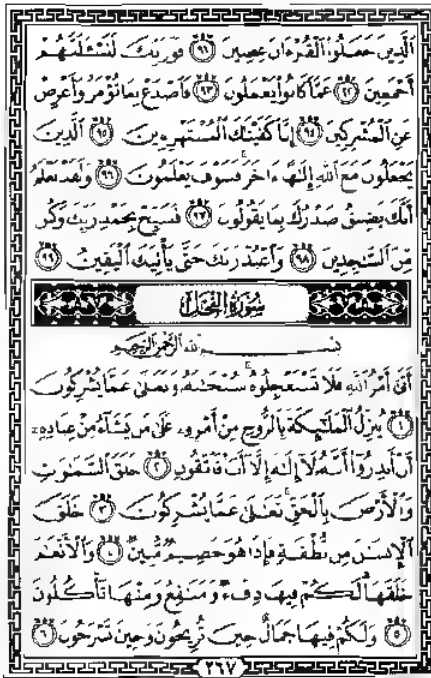 ٱلَّذِينَ جَعَلُوا۟ ٱلْقُرْءَانَ عِضِينَ ٩١ فَوَرَبِّكَ لَنَسْـَٔلَنَّهُمْ
أَجْمَعِينَ ٩٢ عَمَّا كَانُوا۟ يَعْمَلُونَ ٩٣ فَٱصْدَعْ بِمَا تُؤْمَرُ وَأَعْرِضْ
عَنِ ٱلْمُشْرِكِينَ ٩٤ إِنَّا كَفَيْنَـٰكَ ٱلْمُسْتَهْزِءِينَ ٩٥ ٱلَّذِينَ
يَجْعَلُونَ مَعَ ٱللَّهِ إِلَـٰهًا ءَاخَرَ فَسَوْفَ يَعْلَمُونَ ٩٦ وَلَقَدْ نَعْلَمُ
أَنَّكَ يَضِيقُ صَدْرُكَ بِمَا يَقُولُونَ ٩٧ فَسَبِّحْ بِحَمْدِ رَبِّكَ وَكُن
مِّنَ ٱلسَّـٰجِدِينَ ٩٨ وَٱعْبُدْ رَبَّكَ حَتَّىٰ يَأْتِيَكَ ٱلْيَقِينُ ٩٩
سُورَةُ النَّحْلِ
بِسْمِ ٱللَّهِ ٱلرَّحْمَـٰنِ ٱلرَّحِيمِ
أَتَىٰٓ أَمْرُ ٱللَّهِ فَلَا تَسْتَعْجِلُوهُ سُبْحَـٰنَهُۥ وَتَعَـٰلَىٰ عَمَّا يُشْرِكُونَ
١ يُنَزِّلُ ٱلْمَلَـٰٓئِكَةَ بِٱلرُّوحِ مِنْ أَمْرِهِۦ عَلَىٰ مَن يَشَآءُ مِنْ عِبَادِهِۦٓ
أَنْ أَنذِرُوٓا۟ أَنَّهُۥ لَآ إِلَـٰهَ إِلَّآ أَنَا۠ فَٱتَّقُونِ ٢ خَلَقَ ٱلسَّمَـٰوَٰتِ
وَٱلْأَرْضَ بِٱلْحَقِّ تَعَـٰلَىٰ عَمَّا يُشْرِكُونَ ٣ خَلَقَ
ٱلْإِنسَـٰنَ مِن نُّطْفَةٍ فَإِذَا هُوَ خَصِيمٌ مُّبِينٌ ٤ وَٱلْأَنْعَـٰمَ
خَلَقَهَا لَكُمْ فِيهَا دِفْءٌ وَمَنَـٰفِعُ وَمِنْهَا تَأْكُلُونَ
٥ وَلَكُمْ فِيهَا جَمَالٌ حِينَ تُرِيحُونَ وَحِينَ تَسْرَحُونَ ٦
٢٦٧